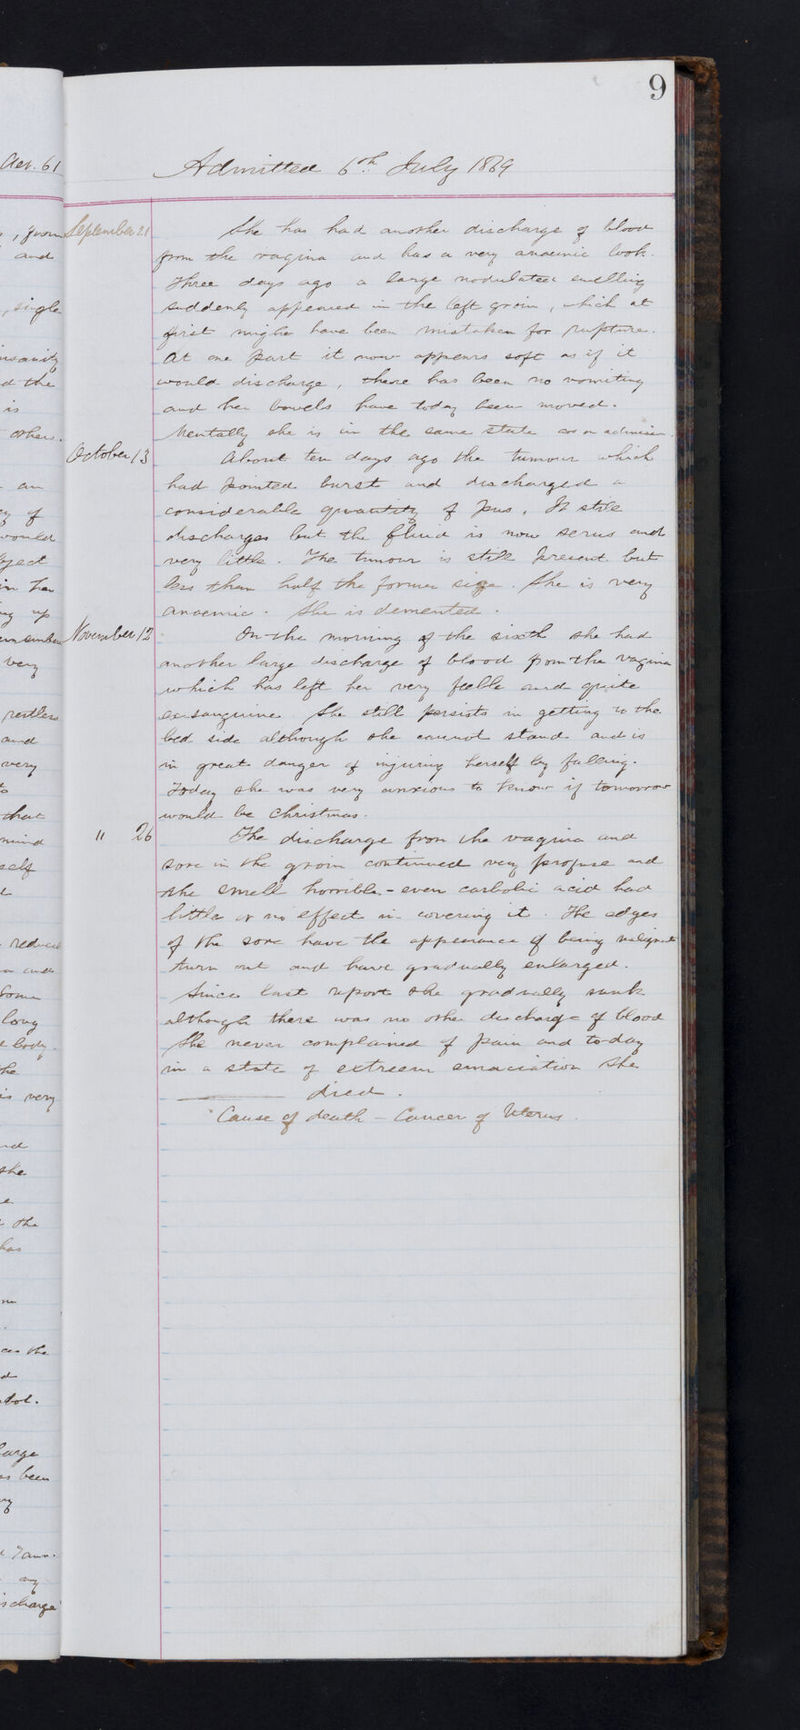 9
Aet. 61
Admitted 6th July 1869
September 21 She has had another discharge of blood
from the vagina and has a very anaemic look.
Three days ago a large nodulated swelling
suddenly appeared in the left groin, which at
first might have been mistaken for rupture.
At one part it now appears soft as if it
would discharge, there has been no vomiting
and her bowels have today been moved.
Mentally she is in the same state as on admission.
October 13 About ten days ago the tumour which
had pointed burst and discharged a
considerable quantity of pus. It still
discharges but the fluid is now serus and
very little. The tumour is still present but
less than half the former size. She is very
anaemic. She is demented.
November 12 On the morning of the sixth she had
another large discharge of blood from the vagina
which has left her very feeble and quite
exsanguine. She still persists in getting to the
bed side although she cannot stand and is
in great danger of injuring herself by falling.
Today she was very anxious to know if tomorrow
would be Christmas.
" 26 The discharge from the vagina and
sore in the groin continued very profuse and
the smell horrible - even carbolic acid had
little or no effect in covering it. The edges
of the sore have the appearance of being malignant
turn out and have gradually enlarged.
Since last report she gradually sunk
although there was no other discharge of blood
She never complained of pain and today
in a state of extreem emaciation she
died.
Cause of death - Cancer of Uterus.